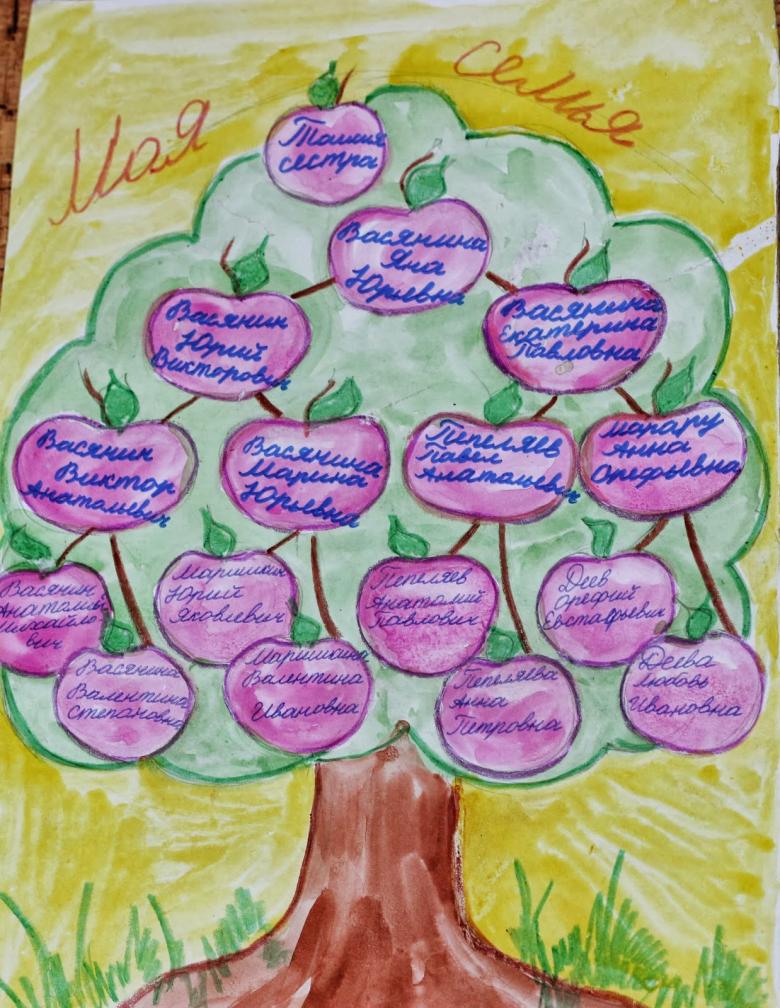 Моя семья
Таисия
сестра
Васянина
Яна
Юрьевна
Васянин
Юрий
Викторович
Васянина
Екатерина
Павловна
Васянин
Виктор
Анатольевич
Васянина
Марина
Юрьевна
Пепеляев
Павел
Анатальевич
Марару
Анна
Орефьевна
Васянин
Анатолий
Михайло
вич
Васянина
Валентина
Степановна
Маришкин
Юрий
Яковлевич
Маришкина
Валентина
Ивановна
Пепеляев
Анатолий
Павлович
Пепеляева
Анна
Петровна
Деев
Орефий
Евстафьевич
Деева
Любовь
Ивановна